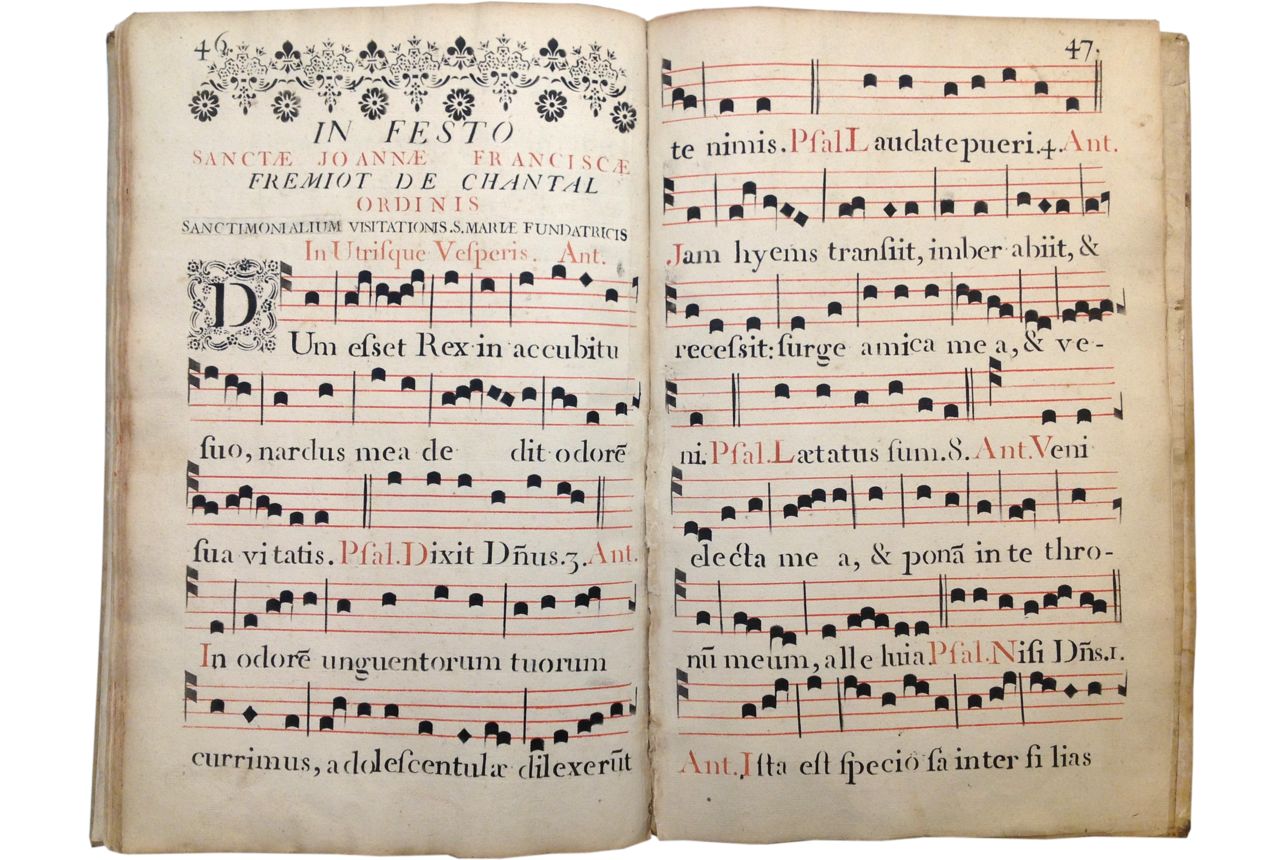 46.
IN FESTO
SANCTÆ JOANNÆ FRANCISCÆ
FREMIOT DE CHANTAL
ORDINIS
SANCTIMONIALIUM VISITATIONIS.S.MARIÆ FUNDATRICIS
In Utriſque Veſperis. Ant.
DUm eſset Rex in accubitu
ſuo, nardus mea de dit odorē
ſua vi tatis. Pſal. Dixit Dñus.3. Ant.
In odorē unguentorum tuorum
currimus, adoleſcentulæ dilexerūt
47.
te nimis. Pſal. Laudate pueri.4. Ant.
Jam hyems tranſiit, imber abiit, &
receſsit: ſurge amica me a, & ve-
ni. Pſal. Lætatus ſum.8. Ant. Veni
electa me a, & ponā in te thro-
nū meum, alle luia Pſal. Niſi Dñs.1.
Ant. Iſta eſt ſpecio ſa inter fi lias